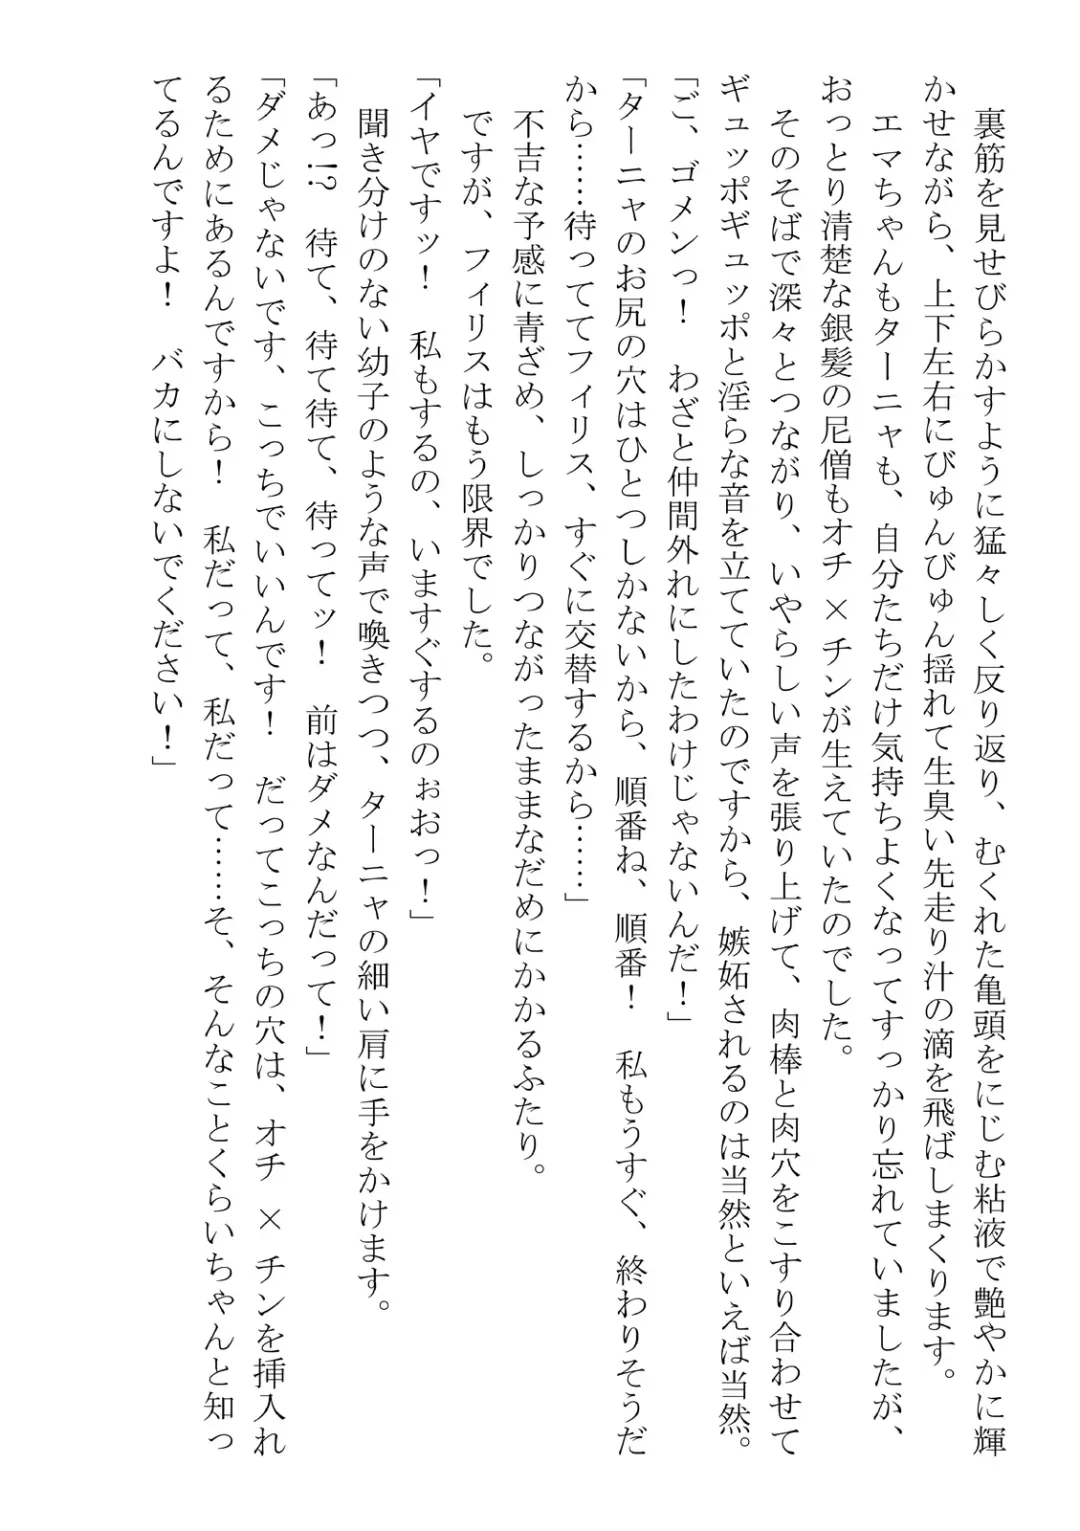 裏筋を見せびらかすように猛々しく反り返り、むくれた亀頭をにじむ粘液で艶やかに輝
かせながら、上下左右にびゅんびゅん揺れて生臭い先走り汁の滴を飛ばしまくります。
エマちゃんもターニャも、自分たちだけ気持ちよくなってすっかり忘れていましたが、
おっとり清楚な銀髪の尼僧もオチ×チンが生えていたのでした。
そのそばで深々とつながり、いやらしい声を張り上げて、肉棒と肉穴をこすり合わせて
ギュッポギュッポと淫らな音を立てていたのですから、嫉妬されるのは当然といえば当然。
「ご、ゴメンっ！　わざと仲間外れにしたわけじゃないんだ！」
「ターニャのお尻の穴はひとつしかないから、順番ね、順番！　私もうすぐ、終わりそうだ
から……待っててフィリス、すぐに交替するから……」
不吉な予感に青ざめ、しっかりつながったままなだめにかかるふたり。
ですが、フィリスはもう限界でした。
「イヤですッ！　私もするの、いますぐするのぉおっ！」
聞き分けのない幼子のような声で喚きつつ、ターニャの細い肩に手をかけます。
「あっ!?　待て、待て待て、待ってッ！　前はダメなんだって！」
「ダメじゃないです、こっちでいいんです！　だってこっちの穴は、オチ×チンを挿入れ
るためにあるんですから！　私だって、私だって……そ、そんなことくらいちゃんと知っ
てるんですよ！　バカにしないでください！」